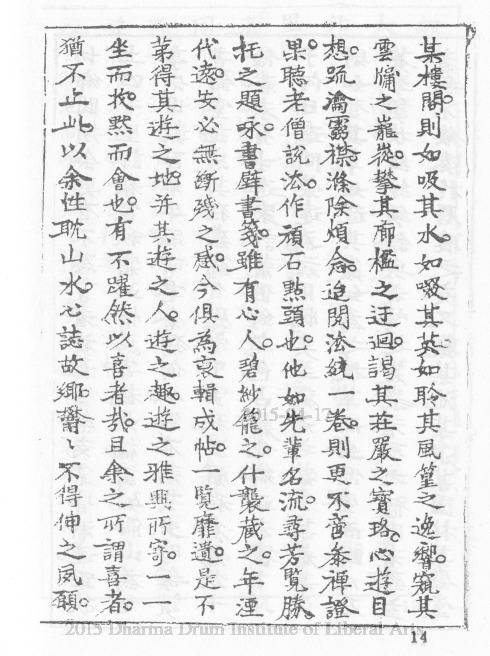 某樓閣。則如吸其水。如啜其英。如聆其風篁之逸響。窺其
雲牖之巃嵸。攀其廊檻之迂迴。謁其莊嚴之寶珞。心遊目
想。疏瀹靈襟。滌除煩念。迨閱法統一卷。則更不啻參禪證
果。聽老僧說法。作頑石點頭也。他如先輩名流。尋芳覽勝。
托之題咏。書壁書箋。雖有心人。碧紗籠之。什襲藏之。年湮
代遠。安必無斷殘之感。今俱為裒輯成帖。一覽靡遺。是不
第得其遊之地。并其遊之人。遊之趣。遊之雅興所寄。一一
坐而收。默而會也。有不躍然以喜者哉。且余之所謂喜者。
猶不止此。以余性耽山水。心誌故鄉。欝〻不得伸之夙願。
2015-04-17
2015 Dharma Drum Institute of Liberal Arts
14